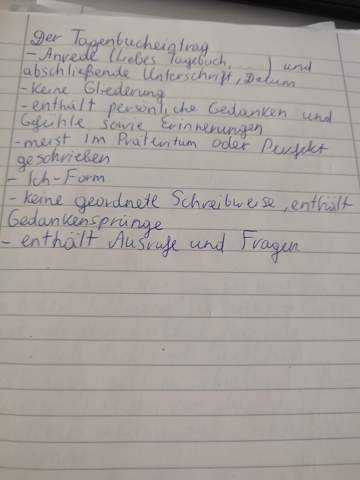 Der Tagenbucheigtrag
- Anrede (liebes Tagebuch, ) und
abschließende Unterschrift, Datum
- keine Gliederung
- enthält persönliche Gedanken und
Gefühle sowie Erinnerungen
- meist im Präteritum oder Perfekt
geschrieben
- Ich-Form
- keine geordnete Schreibweise, enthält
Gedankensprünge
- enthält Ausrufe und Fragen